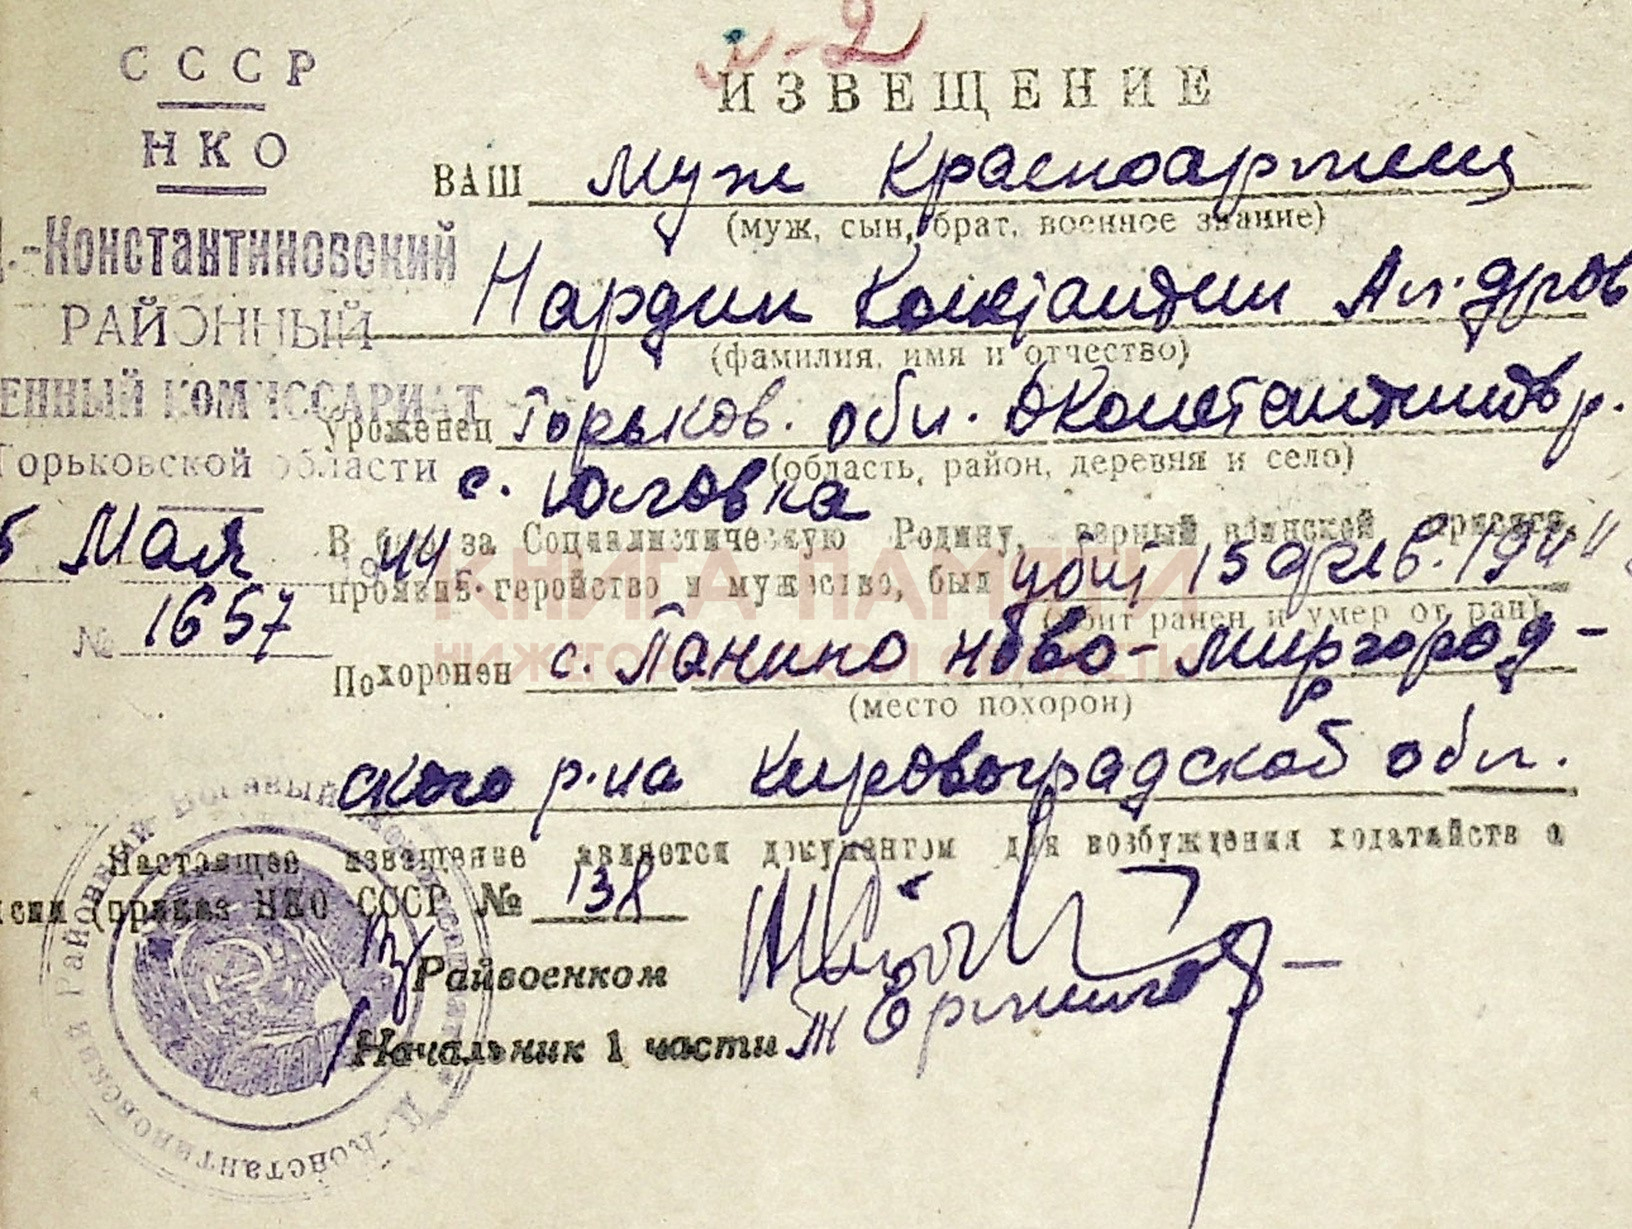 СССР
НКО
.-Константиновский
РАЙОННЫЙ
ЕННЫЙ КОМИССАРИАТ
Горьковской области
5 Мая 1944 г.
№ 1657
ИЗВЕЩЕНИЕ
ВАШ муж красноармеец
(муж, сын, брат, военное звание)
Нардин Константин Ал-дров
(фамилия, имя и отчество)
Уроженец Горьков. обл. ДКонстантинов р.
(область, район, деревня и село)
с. Юловка
В бою за Социалистическую Родину, верный воинской присяге,
проявив геройство и мужество, был убит 15 фев. 1944
(убит ранен и умер от ран)
Похоронен с. Панино Ново-Миргород-
(место похорон)
ского р-на Кировоградской обл.
Настоящее извещение является документом для возбуждения ходатайств о
нсии (приказ НКО СССР № 138
Райвоенком
Начальник 1 части
КНИГА ПАМЯТИ
НИЖЕГОРОДСКОЙ ОБЛАСТИ